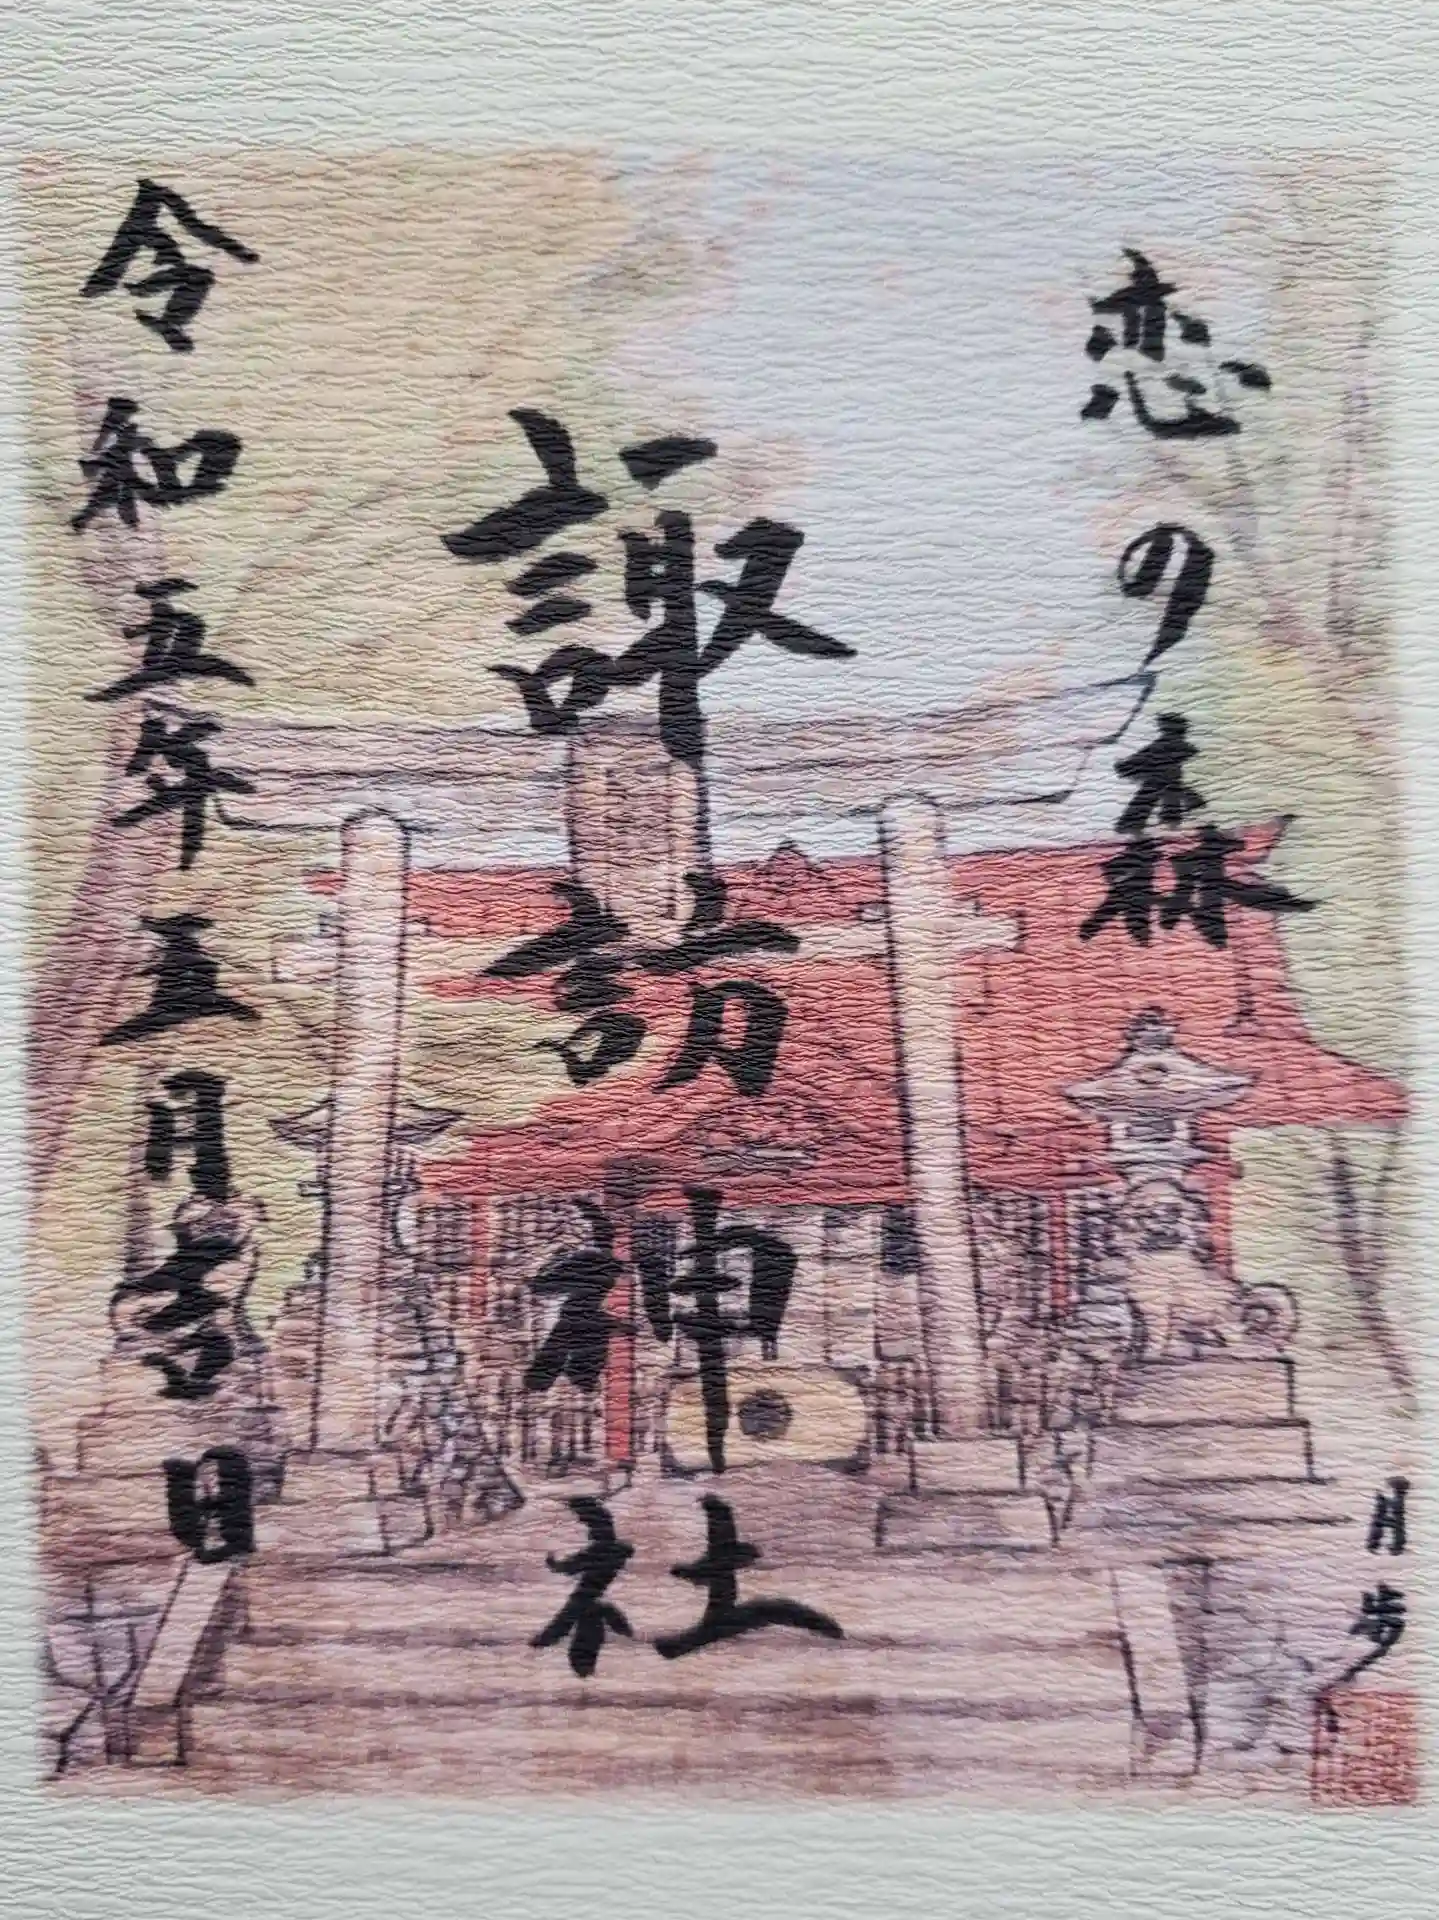 恋の森
諏訪神社
令和五年五月吉日
月歩